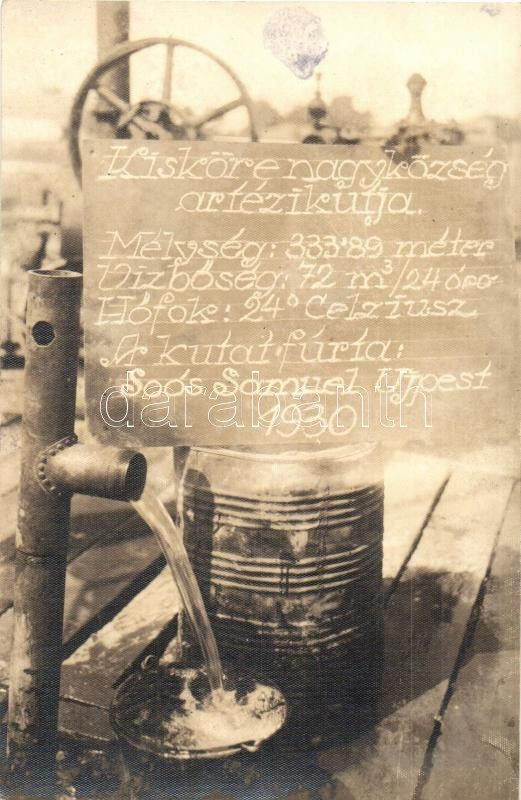 Kisköre nagyközség
artézikutja.
Mélység: 333'89 méter
Vizbőség: 72 m³/24 óra
Hófok: 24° Celziusz
A kutat fúrta:
Soós Samuel Ujpest
1930
darabanth